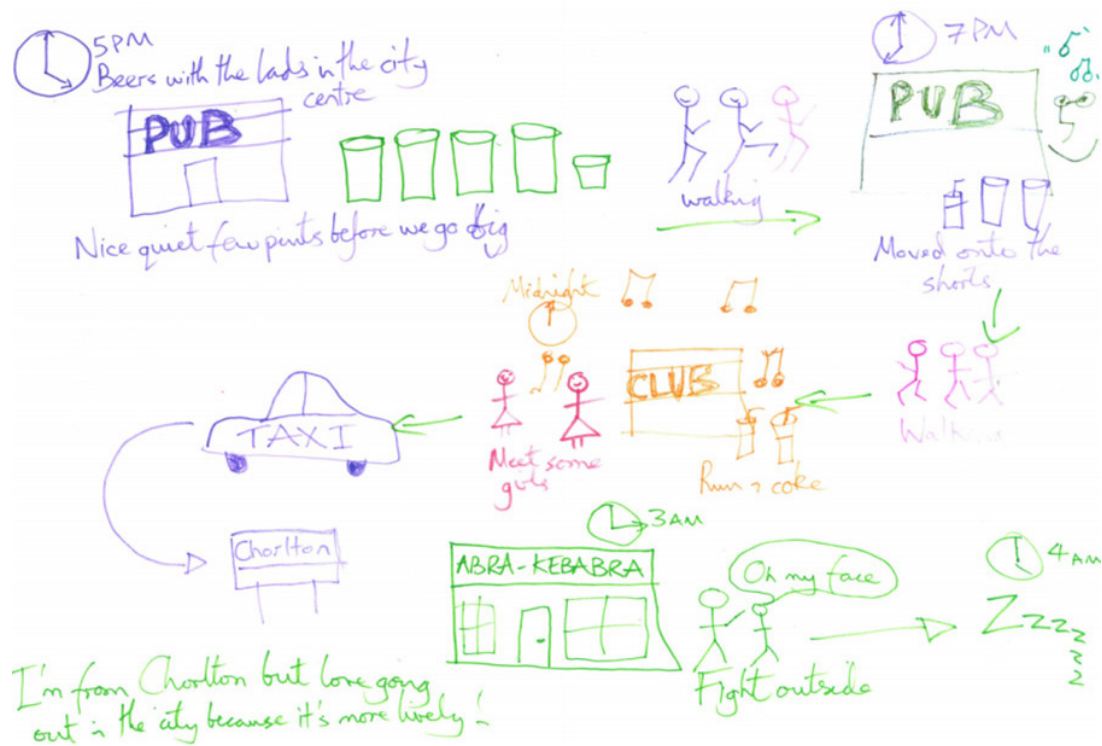 5PM
Beers with the lads in the city
centre
PUB
Nice quiet few pints before we go big
walking
7PM
PUB
Moved onto the
shorts
Walking
Midnight
CLUB
Rum & coke
Meet some
girls
TAXI
Chorlton
3AM
ABRA-KEBABRA
Oh my face
Fight outside
4AM
Zzzzzz
I'm from Chorlton but love going
out in the city because it's more lively!